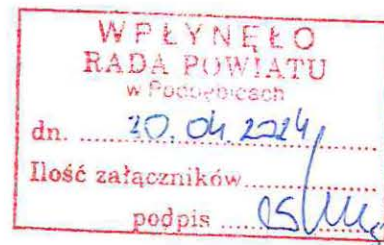 WPŁYNĘŁO
RADA POWIATU
w Poddębicach
dn. 30.04.2024
Ilość załączników
podpis